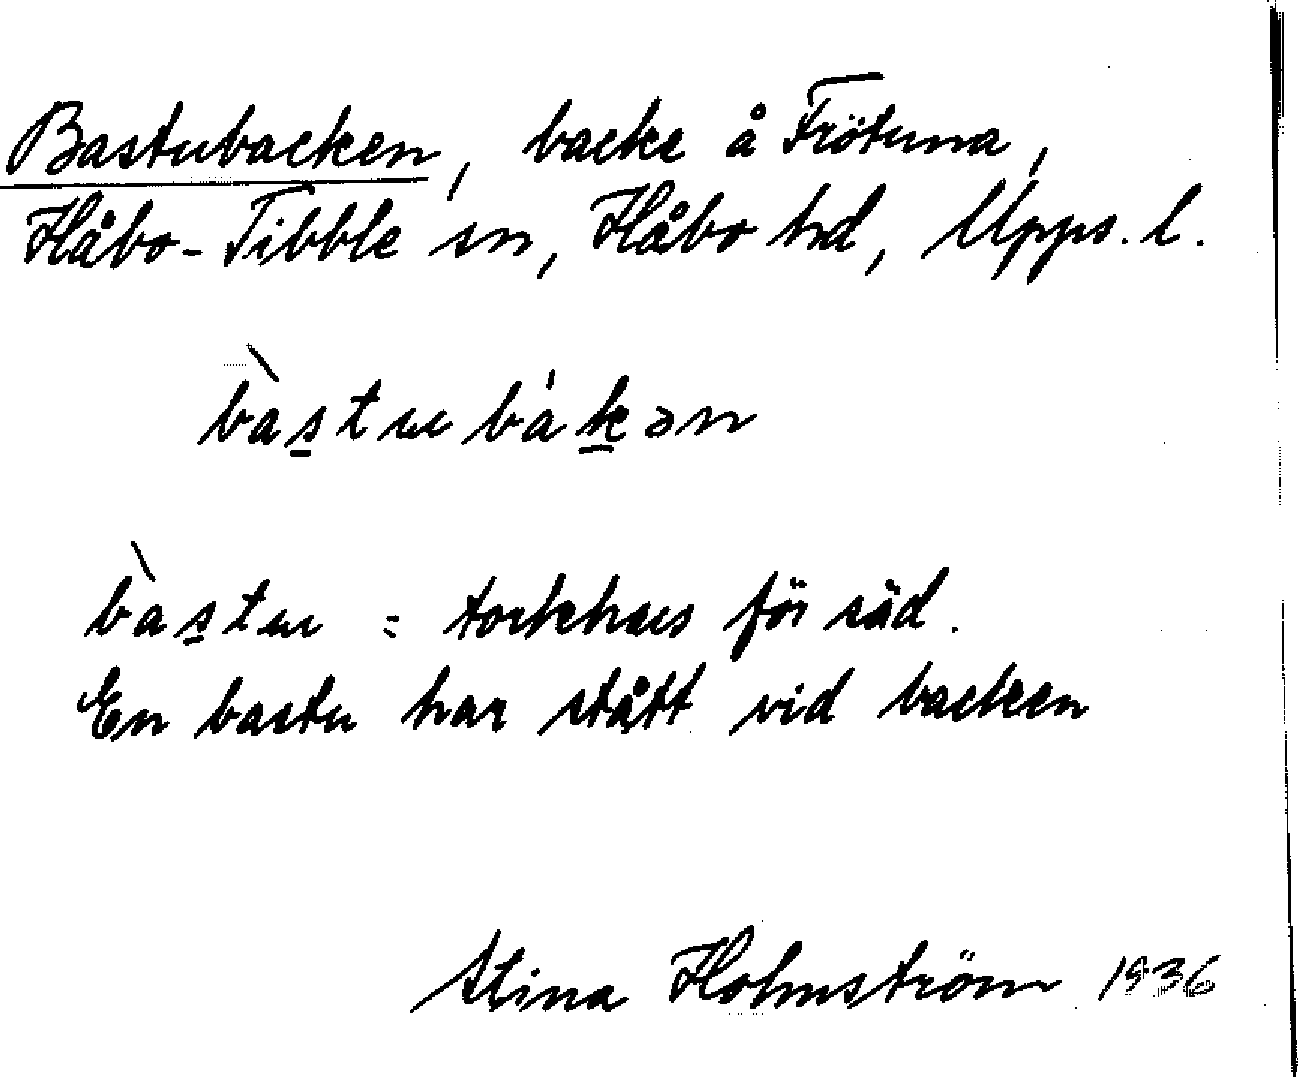 Bastubacken, backe å Frötuna,
Håbo-Tibble sn, Håbo hd, Upps. l.
bàstubákən
bàstu = torkhus för säd.
En bastu har stått vid backen
Stina Holmström 1936